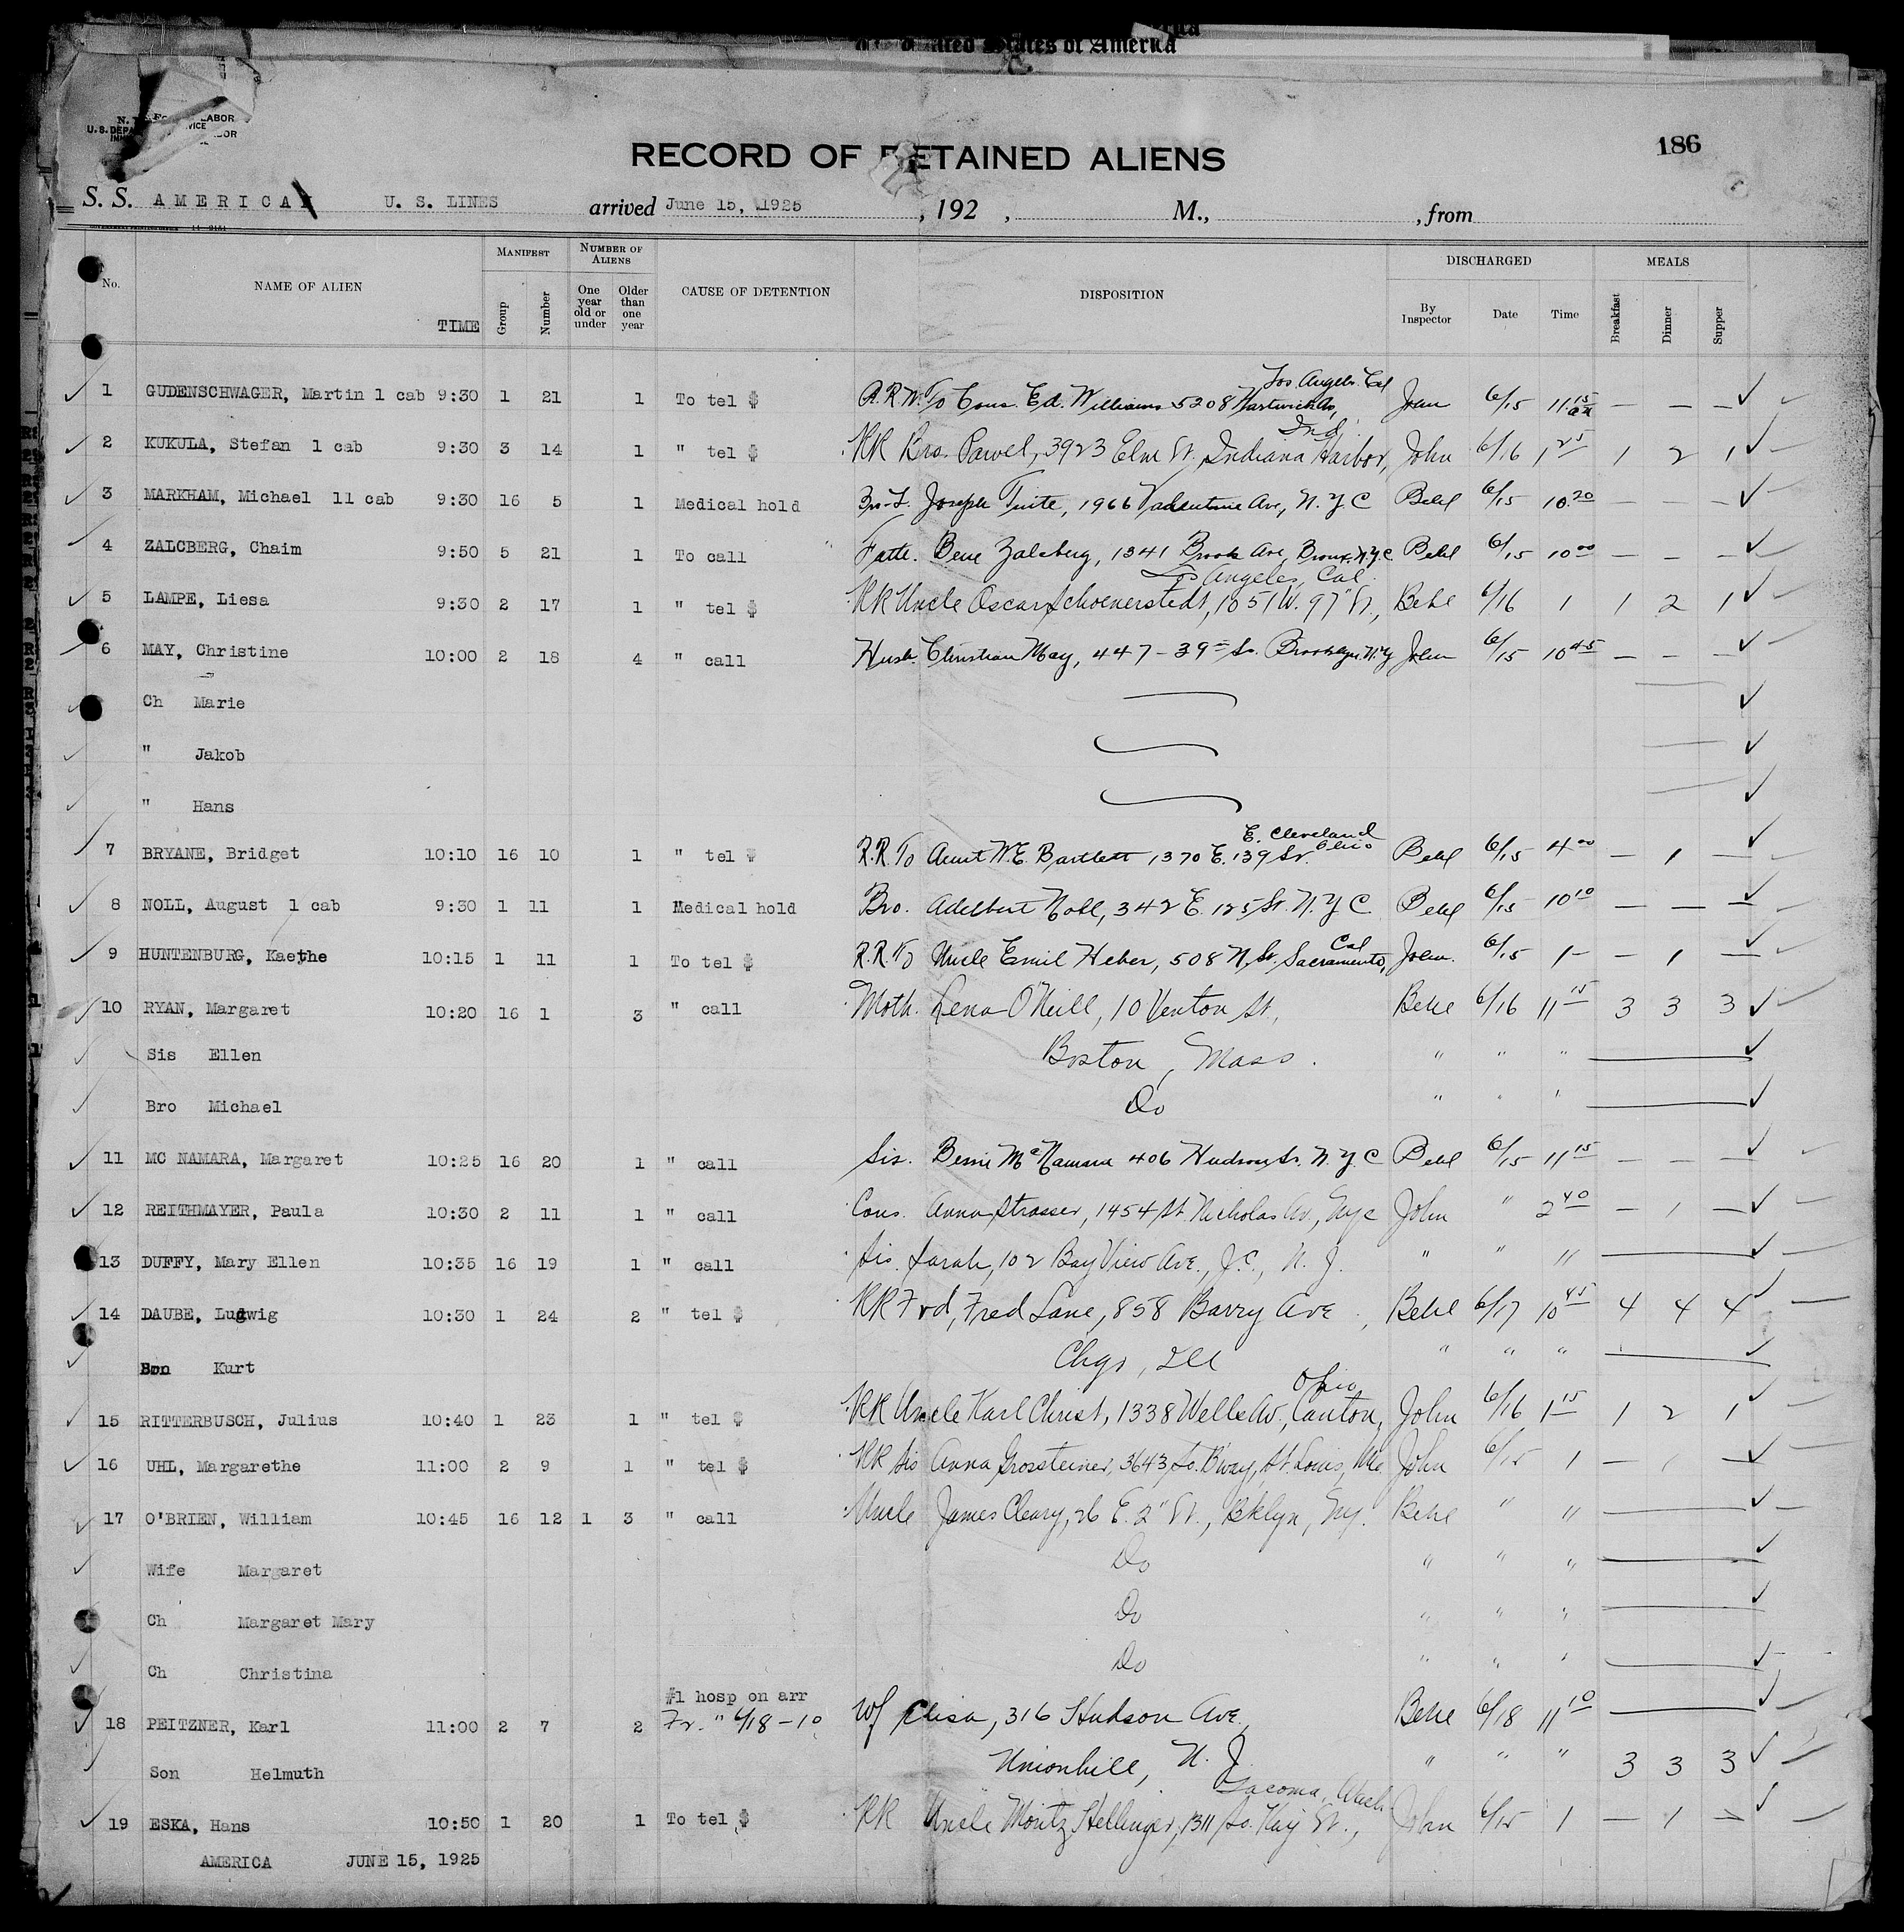 United States of America
U.S. DEPA
LABOR
RECORD OF DETAINED ALIENS
186
S. S. AMERICA U. S. LINES arrived June 15, 1925 , 192 , M., , from
No. NAME OF ALIEN TIME MANIFEST Group Number NUMBER OF ALIENS One year old or under Older than one year CAUSE OF DETENTION DISPOSITION DISCHARGED By Inspector Date Time MEALS Breakfast Dinner Supper
Los Angeles. Cal
1 GUDENSCHWAGER, Martin 1 cab 9:30 1 21 1 To tel $ R.R. To Cous. Ed. Williams 5208 John 6/15 11 15 — — —
Ind.
2 KUKULA, Stefan 1 cab 9:30 3 14 1 " tel $ RR Bro. Pawel, 3923 Elm St. Indiana Harbor, John 6/16 1 25 1 2 1
3 MARKHAM, Michael 11 cab 9:30 16 5 1 Medical hold Joseph Tuite, 1966 Valentine Ave, N.Y.C Behl 6/15 10.20 — —
4 ZALCBERG, Chaim 9:50 5 21 1 To call Fath. Zalcberg, 1341 Brook Ave, Bronx, N.Y.C. Behl 6/15 10 00 — — —
Los Angeles, Cal.
5 LAMPE, Liesa 9:30 2 17 1 " tel $ RR Uncle Oscar Schoenerstedt, 1051 W. 97" St., Behl 6/16 1 1 2 1
6 MAY, Christine 10:00 2 18 4 " call Husb. Christian May, 447 - 39 St. Brooklyn. N.Y John 6/15 10 45 — — —
Ch Marie
" Jakob
" Hans
E. Cleveland
7 BRYANE, Bridget 10:10 16 10 1 " tel $ R.R. To Aunt W.E. Bartlett 1370 E. 139 St. Ohio Behl 6/15 4 00 — 1 —
8 NOLL, August 1 cab 9:30 1 11 1 Medical hold Bro. Adelbert Noll, 342 E. 125 St. N.Y.C. Behl 6/15 10 10 — — —
Cal
9 HUNTENBURG, Kaethe 10:15 1 11 1 To tel $ R.R. To Uncle Emil Heber, 508 N. St. Sacramento, John. 6/15 1 — — 1 —
10 RYAN, Margaret 10:20 16 1 3 " call Moth. Lena O'Neill, 10 Venton St, Behl 6/16 11 15 3 3 3
Sis Ellen Boston, Mass. " " "
Bro Michael Do " " "
11 MC NAMARA, Margaret 10:25 16 20 1 " call Sis. Bessie McNamara 406 Hudson St. N.Y.C Behl 6/15 11 15 — — —
12 REITHMAYER, Paula 10:30 2 11 1 " call Cous. Anna Strasser, 1454 St. Nicholas Av., NYC John " 2 40 — 1 —
13 DUFFY, Mary Ellen 10:35 16 19 1 " call Sis. Sarah, 102 Bay View Ave., J.C., N.J. " " "
14 DAUBE, Ludwig 10:30 1 24 2 " tel $ RR Frd, Fred Lane, 858 Barry Ave, Behl 6/17 10 45 4 4 4
Son Kurt Chgo, Ill " " "
Ohio
15 RITTERBUSCH, Julius 10:40 1 23 1 " tel $ RR Uncle Karl Christ, 1338 Wells Av., Canton, John 6/16 1 15 1 2 1
16 UHL, Margarethe 11:00 2 9 1 " tel $ RR Sis Anna Grossteiner, 3643 So. B'way, St. Louis, Mo. John 6/15 1 — 1 —
17 O'BRIEN, William 10:45 16 12 1 3 " call Uncle James Cleary, 26 E. 2" St., Bklyn, NY. Behl " "
Wife Margaret Do " " "
Ch Margaret Mary Do " " "
Ch Christina Do " " "
#1 hosp on arr
18 PEITZNER, Karl 11:00 2 7 2 Fr. " 6/18-10 Wf Elisa, 316 Hudson Ave, Behl 6/18 11 10
Son Helmuth Unionhill, N.J. " " " 3 3 3
Tacoma, Wash
19 ESKA, Hans 10:50 1 20 1 To tel $ RR Uncle Moritz Hellinger, 1311 So. Kay St., John 6/15 1 — 1 —
AMERICA JUNE 15, 1925